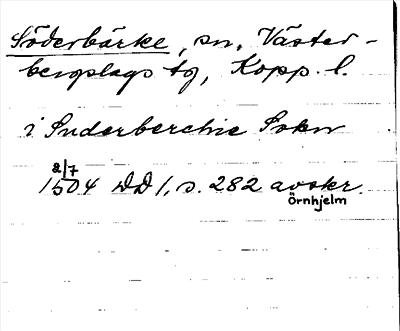 Söderbärke, sn, Väster-
bergslags tg, Kopp. l.
i Suderberchie Sokn
2/7
1504 DD 1, s. 282 avskr.
Örnhjelm